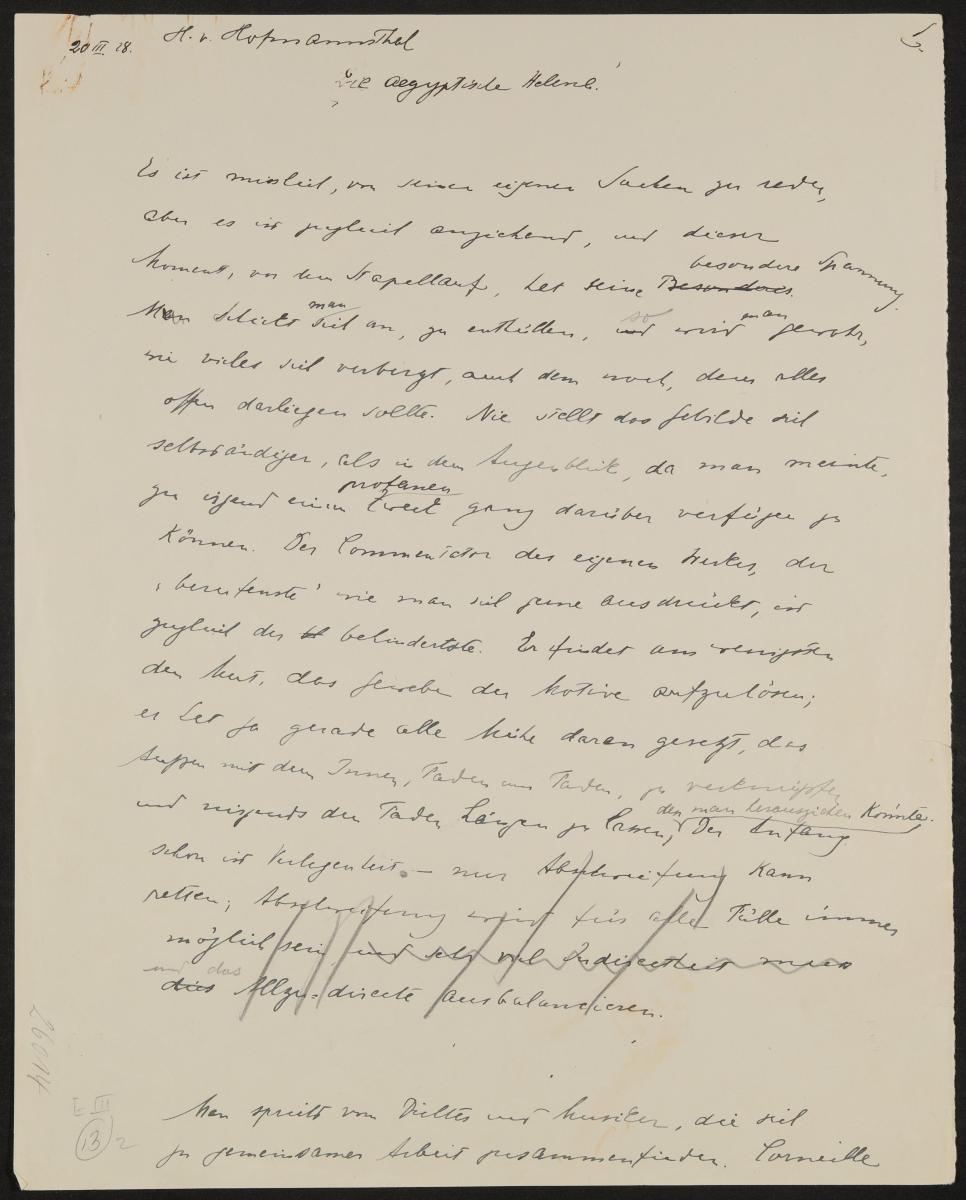 20 III 28. H. v. Hofmannsthal 1.
Die aegyptische Helena.
Es ist misslich, von seinen eigenen Sachen zu reden,
aber es ist zugleich anziehend, und dieser
besondere Spannung.
Moment, vor dem Stapellauf, hat seine Besonderes.
man so man
Man schickt sich an, zu enthüllen, und wird gewahr,
wie vieles sich verbirgt, auch dem noch, dem alles
offen darliegen sollte. Nie stellt das Gebilde sich
selbständiger, als in dem Augenblick, da man meinte,
profanen
zu irgend einem Zweck ganz darüber verfügen zu
Können. Der Commentator des eigenen Werkes, der
„berufenste" wie man sich gerne ausdrückt, ist
zugleich der behindertste. Er findet am wenigsten
den Mut, das Gewebe der Motive aufzulösen;
er hat ja gerade alle Mühe daran gesetzt, das
Aussen mit dem Innen, Faden um Faden, zu verknüpfen
den man herausziehen Könnte.
und nirgends den Faden hängen zu lassen, Der Anfang
schon ist Verlegenheit. – nur Abschweifung Kann
retten; Abschweifung wird für alle Fälle immer
möglich sein, und sehr viel Indiscretheit muss
und das
dies Allzu-discrete ausbalancieren.
Man spricht vom Dichter und Musiker, die sich
zu gemeinsamer Arbeit zusammenfinden. Corneille
26014
E III
13 2